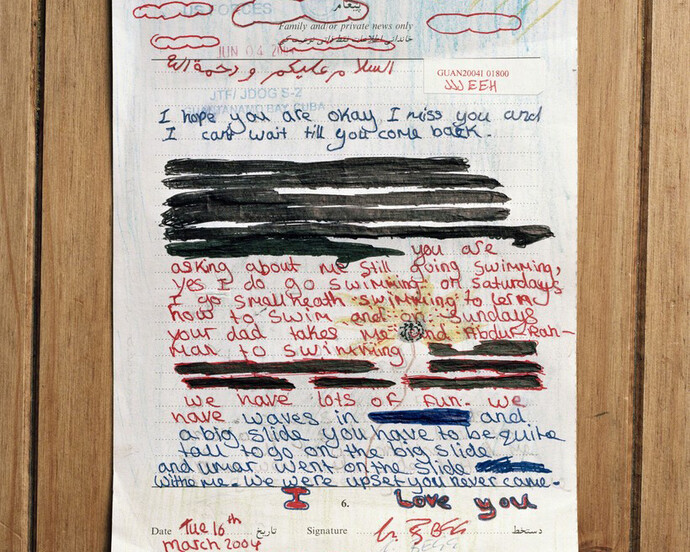 FORCES
پیغام
Family and/or private news only
JUN 04
السلام عليكم و رحمة الله
GUAN20041 01800
JTF/JDOG S-2
GUANTANAMO BAY, CUBA
I hope you are okay I miss you and
I cant wait till you come back.
you are
asking about me still going swimming,
yes I do go swimming on saturdays
I go smallheath swimming to lern
how to swim and on Sundays
your dad takes me and Abdur-Rah-
man to swimming
we have lots of fun. we
have waves in and
a big slide you have to be quite
tall to go on the big slide
and umar went on the slide
withe me. We were upset you never came.
I Love you
6.
Date Tue 16th تاريخ Signature دستخط
March 2004